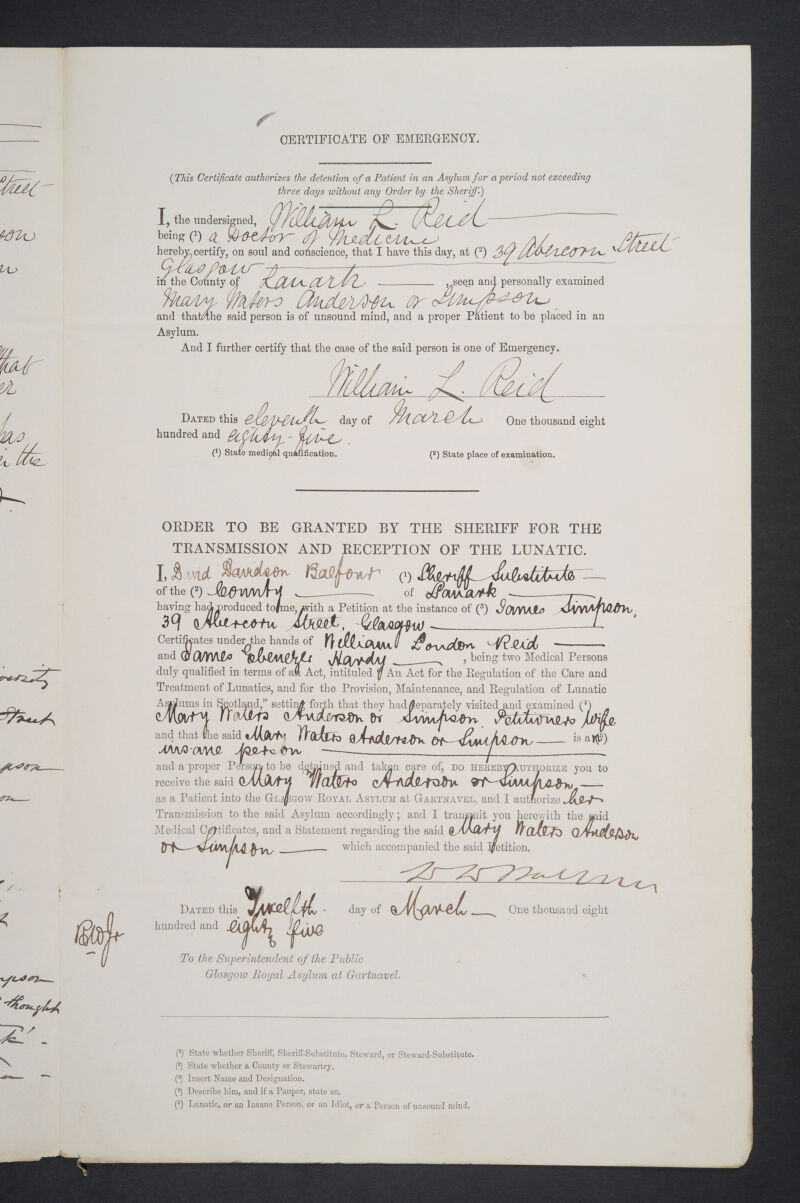 CERTIFICATE OF EMERGENCY.
(This Certificate authorizes the detention of a Patient in an Asylum for a period not exceeding
three days without any Order by the Sheriff.)
I, the undersigned, William L. Reid
being (¹) a Doctor of Medicine
hereby certify, on soul and conscience, that I have this day, at (²) 39 Abercorn Street
Glasgow
in the County of Lanark, seen and personally examined
Mary Waters Anderson or Simpson
and that the said person is of unsound mind, and a proper Patient to be placed in an
Asylum.
And I further certify that the case of the said person is one of Emergency.
William L. Reid
DATED this eleventh day of March One thousand eight
hundred and eighty-five.
(¹) State medical qualification. (²) State place of examination.
ORDER TO BE GRANTED BY THE SHERIFF FOR THE
TRANSMISSION AND RECEPTION OF THE LUNATIC.
I, David Davidson Balfour (¹) Sheriff Substitute
of the (²) County of Lanark
having had produced to me, with a Petition at the instance of (³) James Simpson,
39 Abercorn Street, Glasgow
Certificates under the hands of William Loudon Reid
and James Ebenezer Hardy, being two Medical Persons
duly qualified in terms of an Act, intituled "An Act for the Regulation of the Care and
Treatment of Lunatics, and for the Provision, Maintenance, and Regulation of Lunatic
Asylums in Scotland," setting forth that they had separately visited and examined (⁴)
Mary Waters Anderson or Simpson, Petitioners Wife
and that the said Mary Waters Anderson or Simpson is an (⁵)
insane person
and a proper Person to be detained and taken care of, DO HEREBY AUTHORIZE you to
receive the said Mary Waters Anderson or Simpson
as a Patient into the GLASGOW ROYAL ASYLUM at GARTNAVEL, and I authorize her
Transmission to the said Asylum accordingly; and I transmit you herewith the said
Medical Certificates, and a Statement regarding the said Mary Waters Anderson
or Simpson which accompanied the said Petition.
D D Balfour
DATED this Twelfth day of March One thousand eight
hundred and eighty five
To the Superintendent of the Public
Glasgow Royal Asylum at Gartnavel.
(¹) State whether Sheriff, Sheriff-Substitute, Steward, or Steward-Substitute.
(²) State whether a County or Stewartry.
(³) Insert Name and Designation.
(⁴) Describe him, and if a Pauper, state so.
(⁵) Lunatic, or an Insane Person, or an Idiot, or a Person of unsound mind.